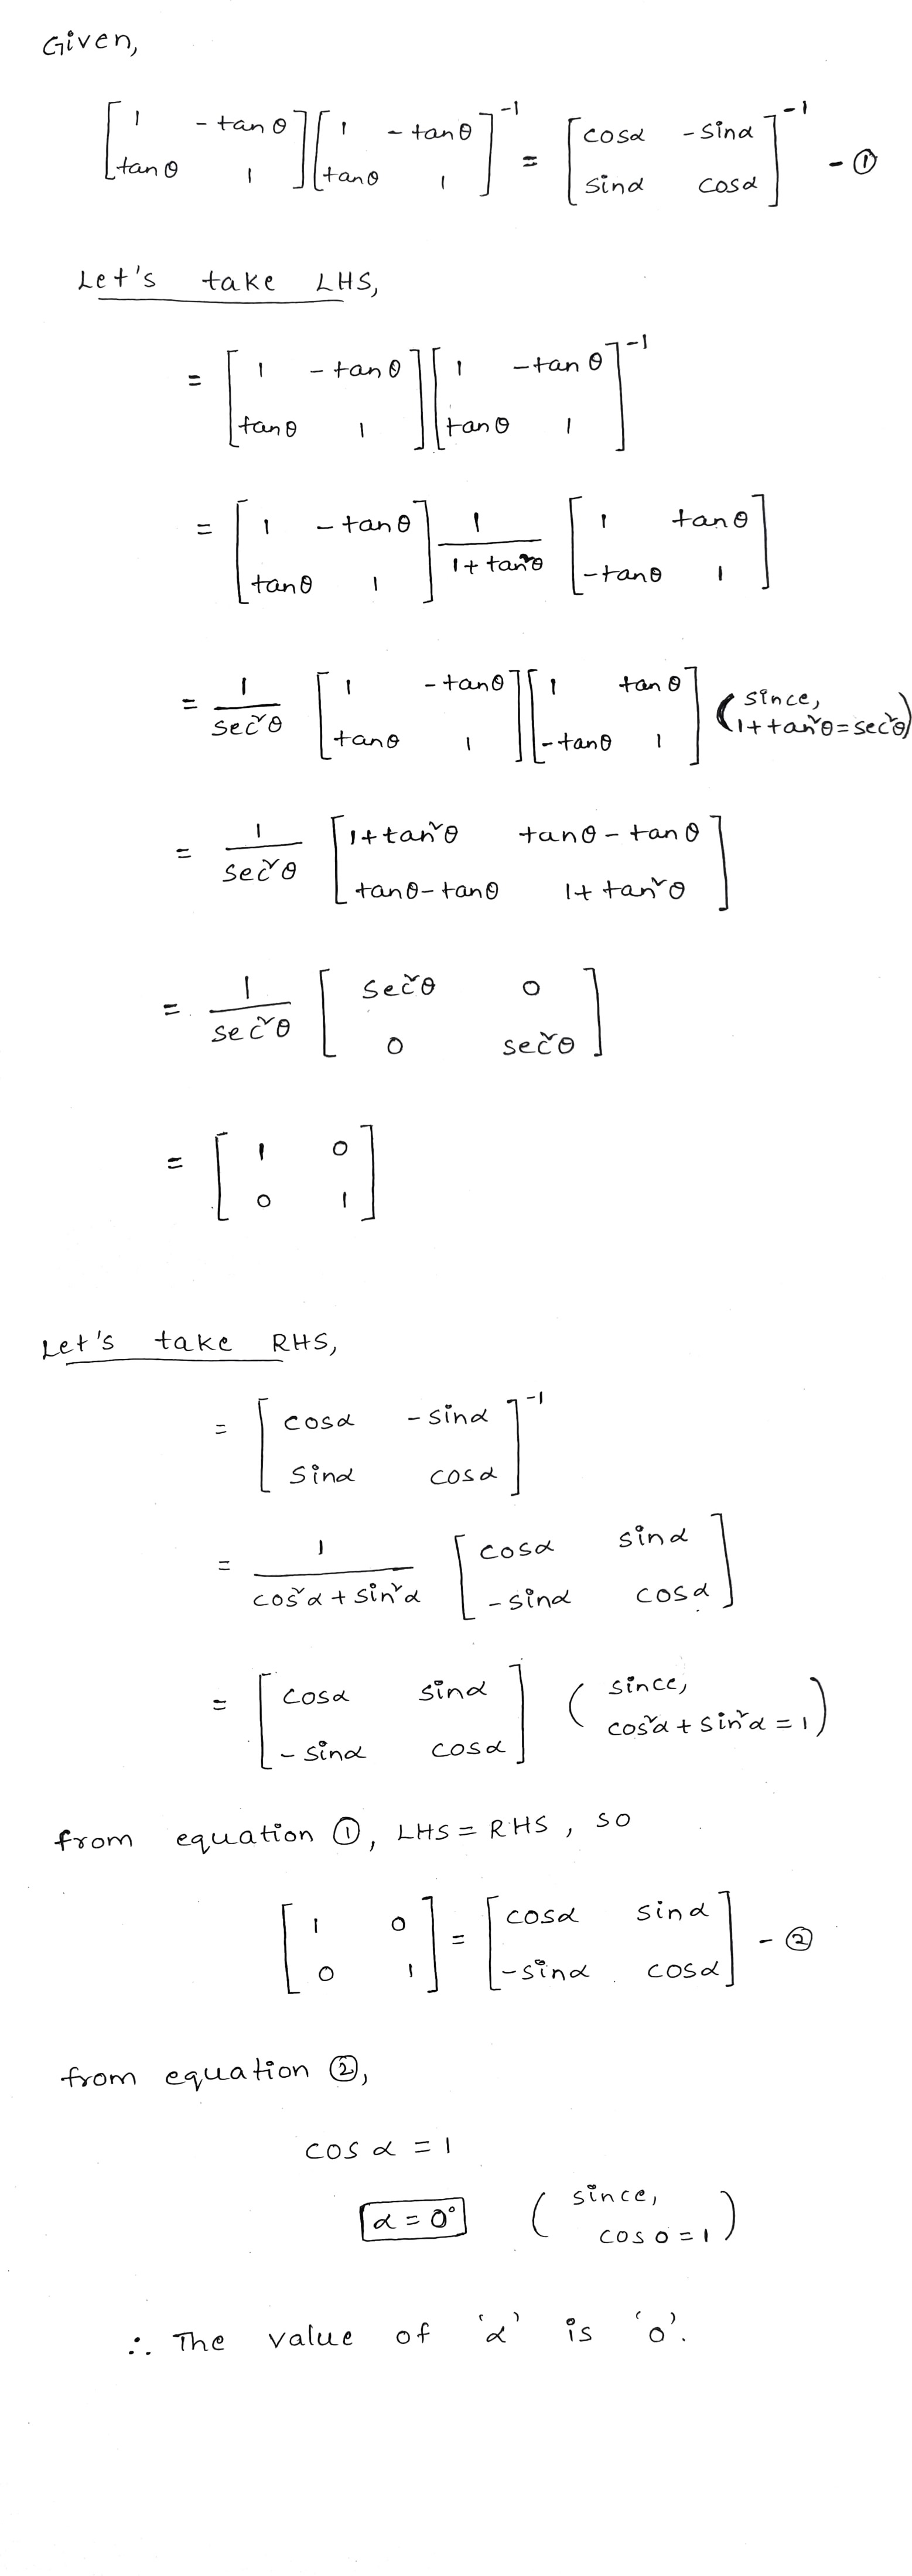 Given,
[1 -tanθ; tanθ 1][1 -tanθ; tanθ 1]⁻¹ = [cosα -sinα; sinα cosα]⁻¹ - ①
Let's take LHS,
= [1 -tanθ; tanθ 1][1 -tanθ; tanθ 1]⁻¹
= [1 -tanθ; tanθ 1] 1/(1+tan²θ) [1 tanθ; -tanθ 1]
= 1/sec²θ [1 -tanθ; tanθ 1][1 tanθ; -tanθ 1] (since, 1+tan²θ=sec²θ)
= 1/sec²θ [1+tan²θ tanθ-tanθ; tanθ-tanθ 1+tan²θ]
= 1/sec²θ [sec²θ 0; 0 sec²θ]
= [1 0; 0 1]
Let's take RHS,
= [cosα -sinα; sinα cosα]⁻¹
= 1/(cos²α+sin²α) [cosα sinα; -sinα cosα]
= [cosα sinα; -sinα cosα] (since, cos²α+sin²α=1)
from equation ①, LHS = RHS, so
[1 0; 0 1] = [cosα sinα; -sinα cosα] - ②
from equation ②,
cos α = 1
α = 0° (since, cos 0 = 1)
∴ The value of 'α' is '0'.